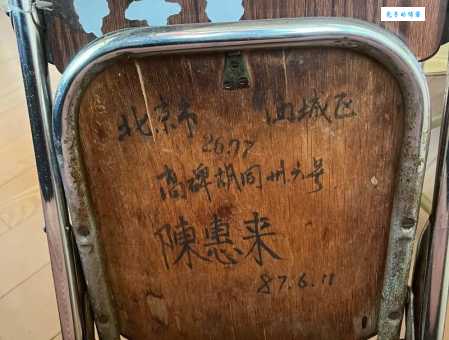 北京市 西城区
2677
高碑胡同卅六号
陳惠来
87.6.11